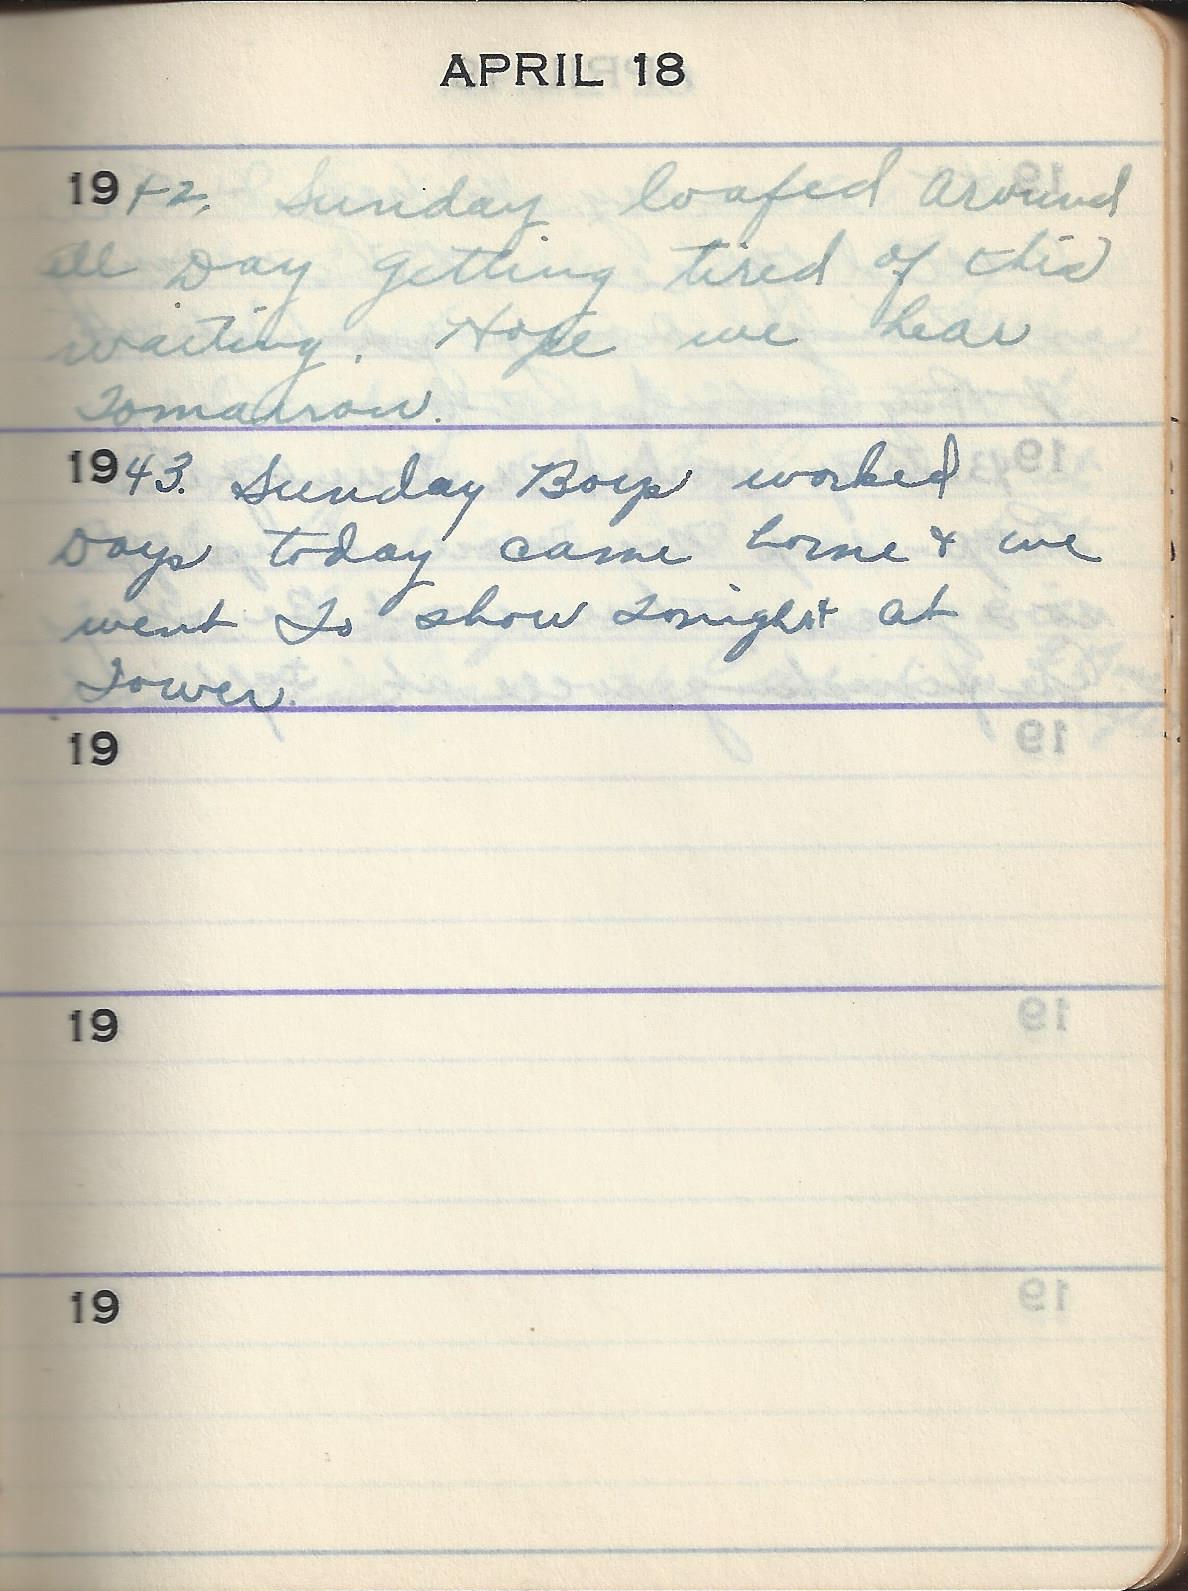 APRIL 18
1942. Sunday loafed around
all Day getting tired of this
waiting. Hope we hear
Tomarrow.
1943. Sunday Boys worked
Days today came home & we
went To show Tonight at
Tower.
19
19
19